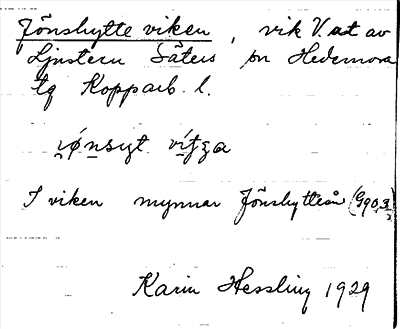 Jönshytte viken, vik V. ut av
Ljustern Säters sn Hedemora
tg Kopparb. l.
I viken mynnar Jönshytteån
Karin Hessling 1929